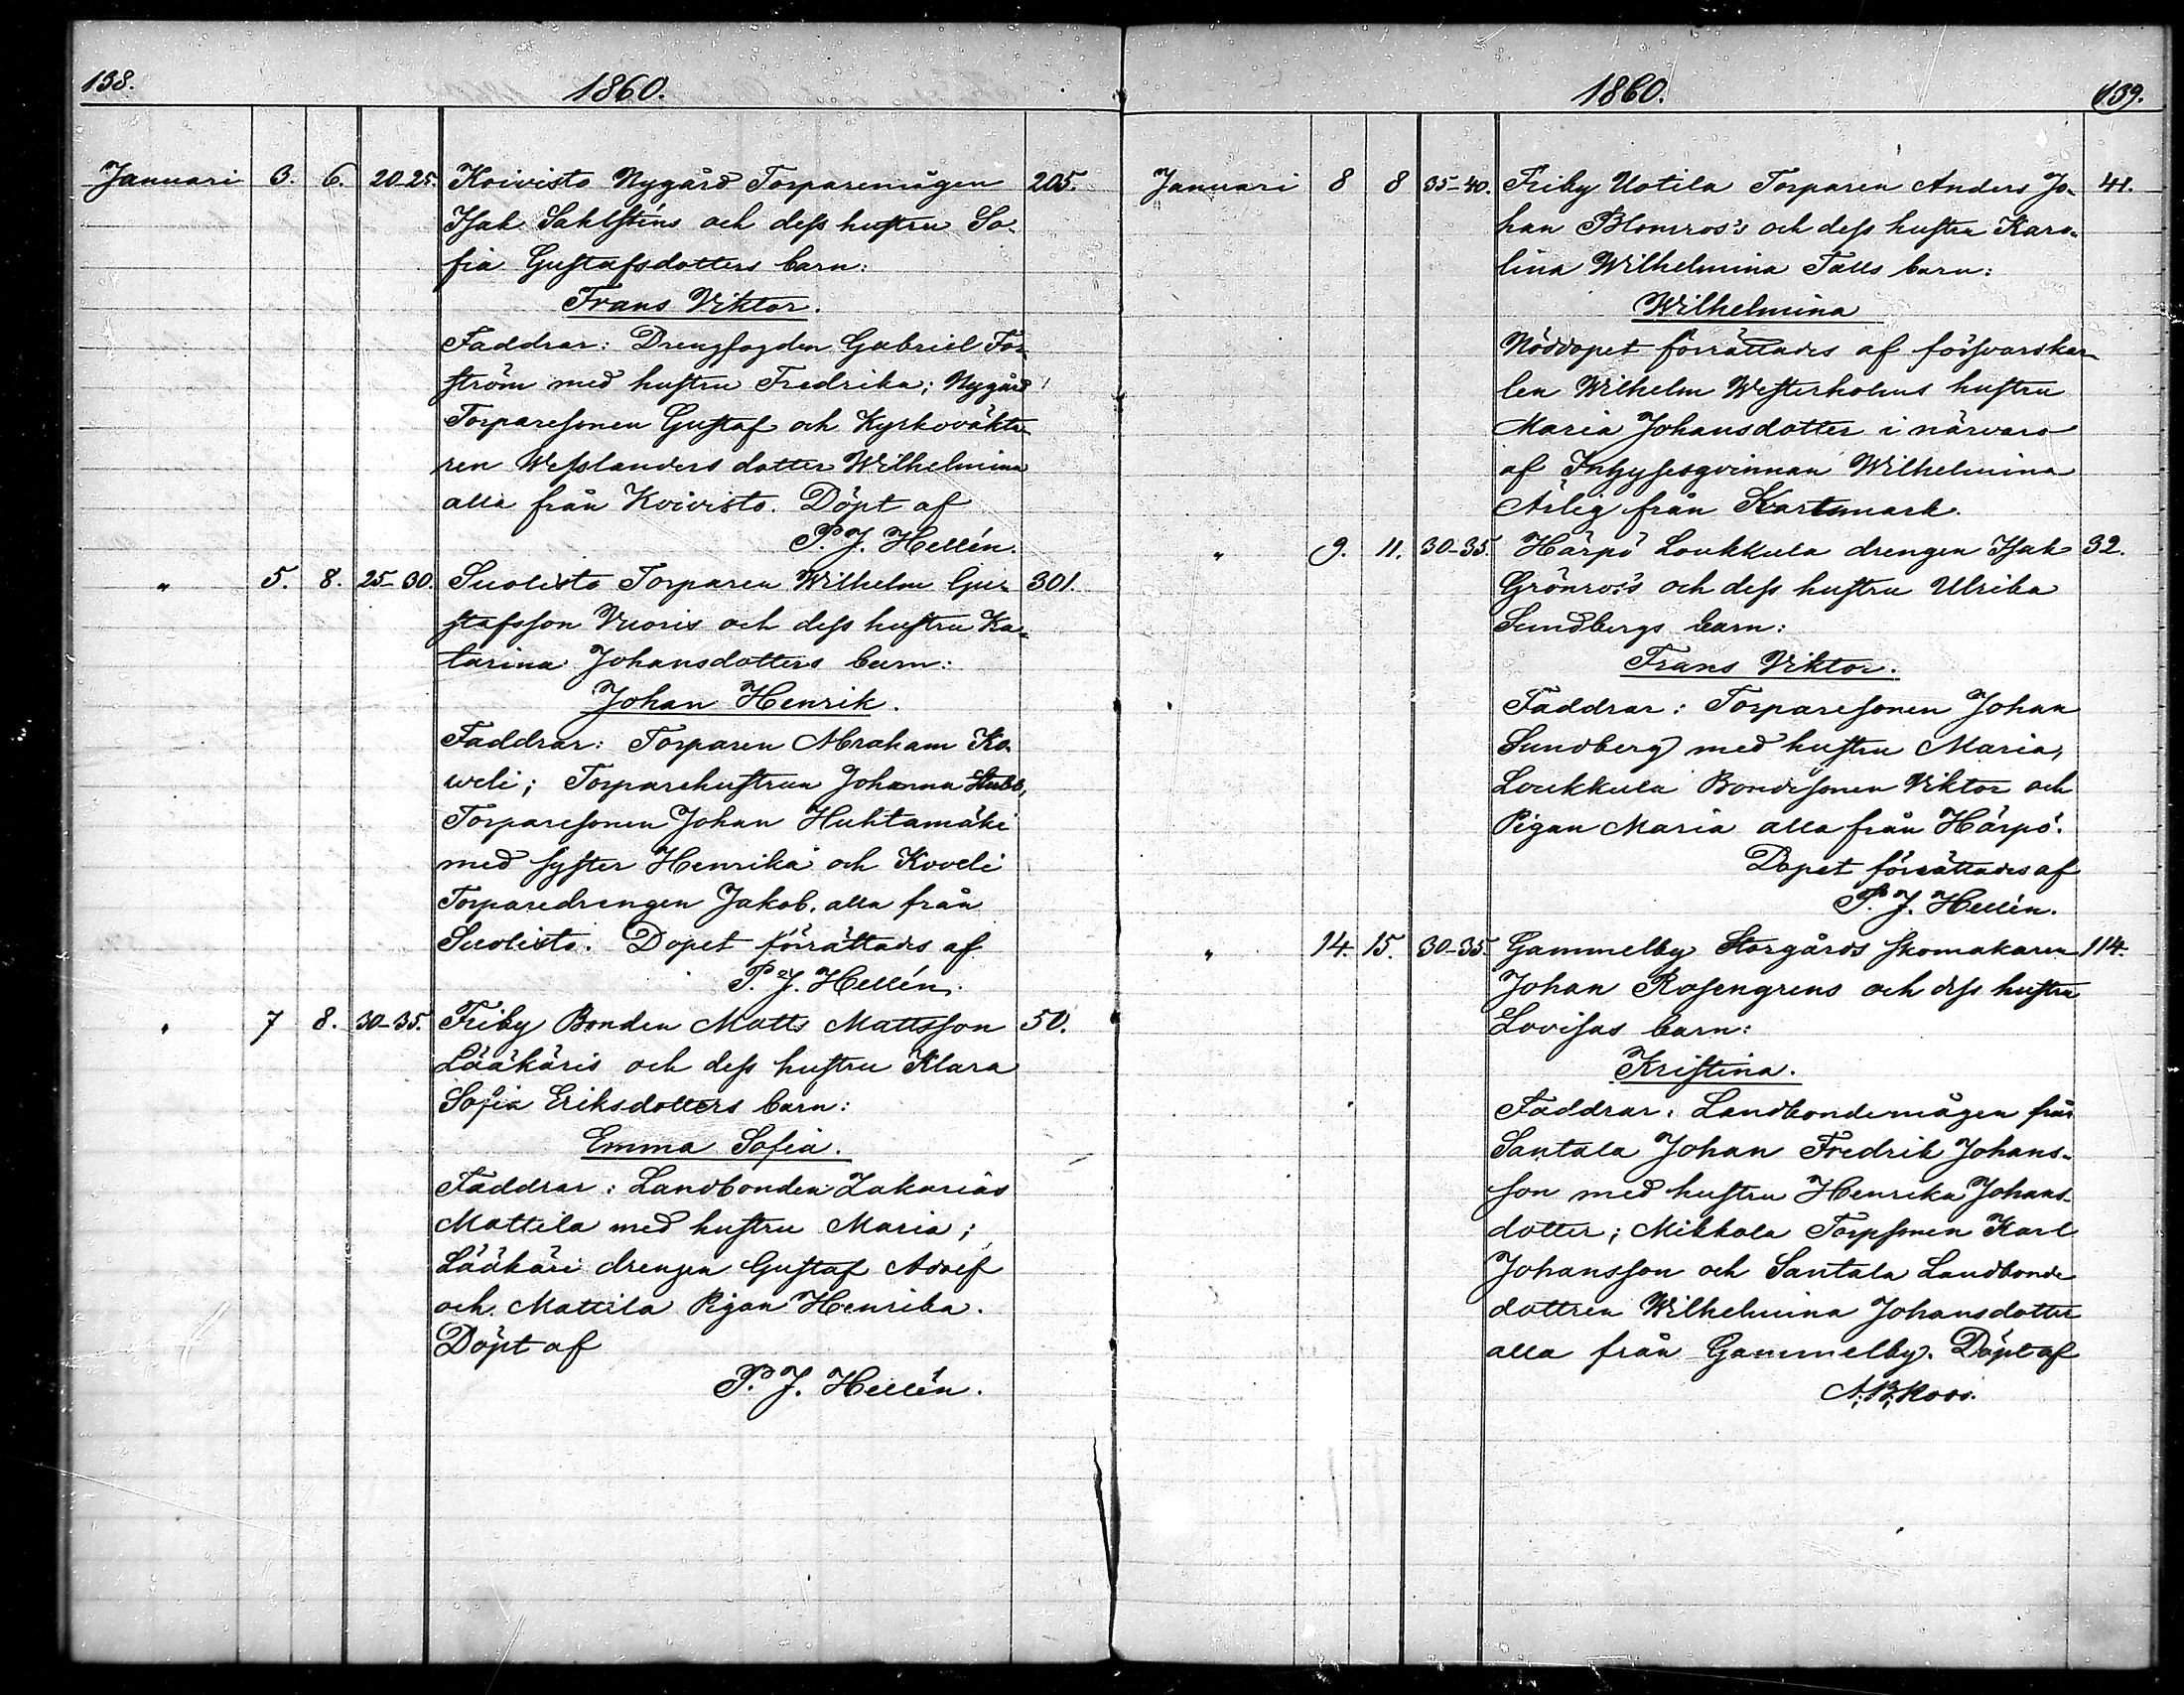 138.
1860.
Januari 3. 6. 20-25. Koivisto Nygård Torparemågen 205.
Isak Sahlsténs och dess hustru So-
fia Gustafsdotters barn:
Frans Viktor.
Faddrar: Drengfogden Gabriel For-
ström med hustru Fredrika; Nygård
Torparesonen Gustaf och Kyrkoväkta-
ren Wesslanders dotter Wilhelmina
alla från Koivisto. Döpt af
P. J. Hellén.
" 5. 8. 25-30. Suolisto Torparen Wilhelm Gu- 301.
stafsson Vuoris och dess hustru Ka-
tarina Johansdotters barn:
Johan Henrik.
Faddrar: Torparen Abraham Ko-
veli; Torparehustrun Johanna Stubb,
Torparesonen Johan Huhtamäki
med syster Henrika och Koveli
Torparedrengen Jakob. alla från
Suolisto. Dopet förrättads af
P. J. Hellén.
" 7 8. 30-35. Friby Bonden Matts Mattsson 50.
Lääkäris och dess hustru Klara
Sofia Eriksdotters barn:
Emma Sofia.
Faddrar: Landbonden Zakarias
Mattila med hustru Maria;
Lääkäri drengen Gustaf Adolf
och Mattila Pigan Henrika.
Döpt af
P. J. Hellén.
1860.
139.
Januari 8 8 35-40. Friby Uotila Torparen Anders Jo- 41.
han Blomros's och dess hustru Karo-
lina Wilhelmina Talls barn:
Wilhelmina
Nöddopet förrättades af försvarskar-
len Wilhelm Westerholms hustru
Maria Johansdotter i närvaro
af Inhysesqvinnan Wilhelmina
Ärlig från Kartsmark.
" 9. 11. 30-35. Härpö Loukkula drengen Isak 32.
Grönros's och dess hustru Ulrika
Sundbergs barn:
Frans Viktor.
Faddrar: Torparesonen Johan
Sundberg med hustru Maria,
Loukkula Bondesonen Viktor och
Pigan Maria alla från Härpö.
Dopet förrättades af
P. J. Hellén.
" 14. 15. 30-35. Gammelby Storgårds skomakaren 114.
Johan Rosengrens och dess hustru
Lovisas barn:
Kristina.
Faddrar: Landbondemågen från
Santala Johan Fredrik Johans-
son med hustru Henrika Johans-
dotter; Mikkola Torpsonen Karl
Johansson och Santala Landbonde
dottren Wilhelmina Johansdotter
alla från Gammelby. Döpt af
A. B. Roos.